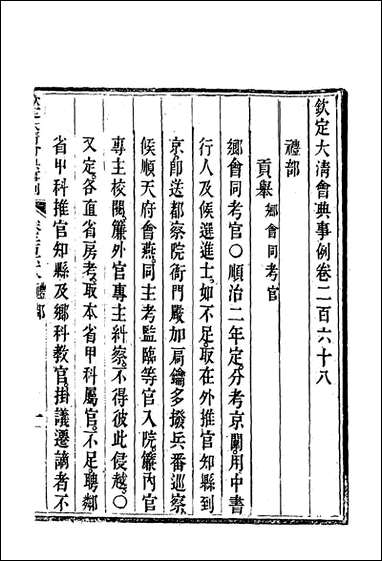 欽定大清會典事例卷二百六十八
禮部
貢舉 鄉會同考官
鄉會同考官○順治二年定分考京闈用中書
行人及候選進士如不足取在外推官知縣到
京即送都察院衙門嚴加扃鑰多撥兵番巡察
候順天府會燕同主考監臨等官入院簾內官
專主校閱簾外官專主糾察不得彼此侵越○
又定各直省房考取本省甲科屬官不足聘鄰
省甲科推官知縣及鄉科教官掛議遷謫者不
禮部